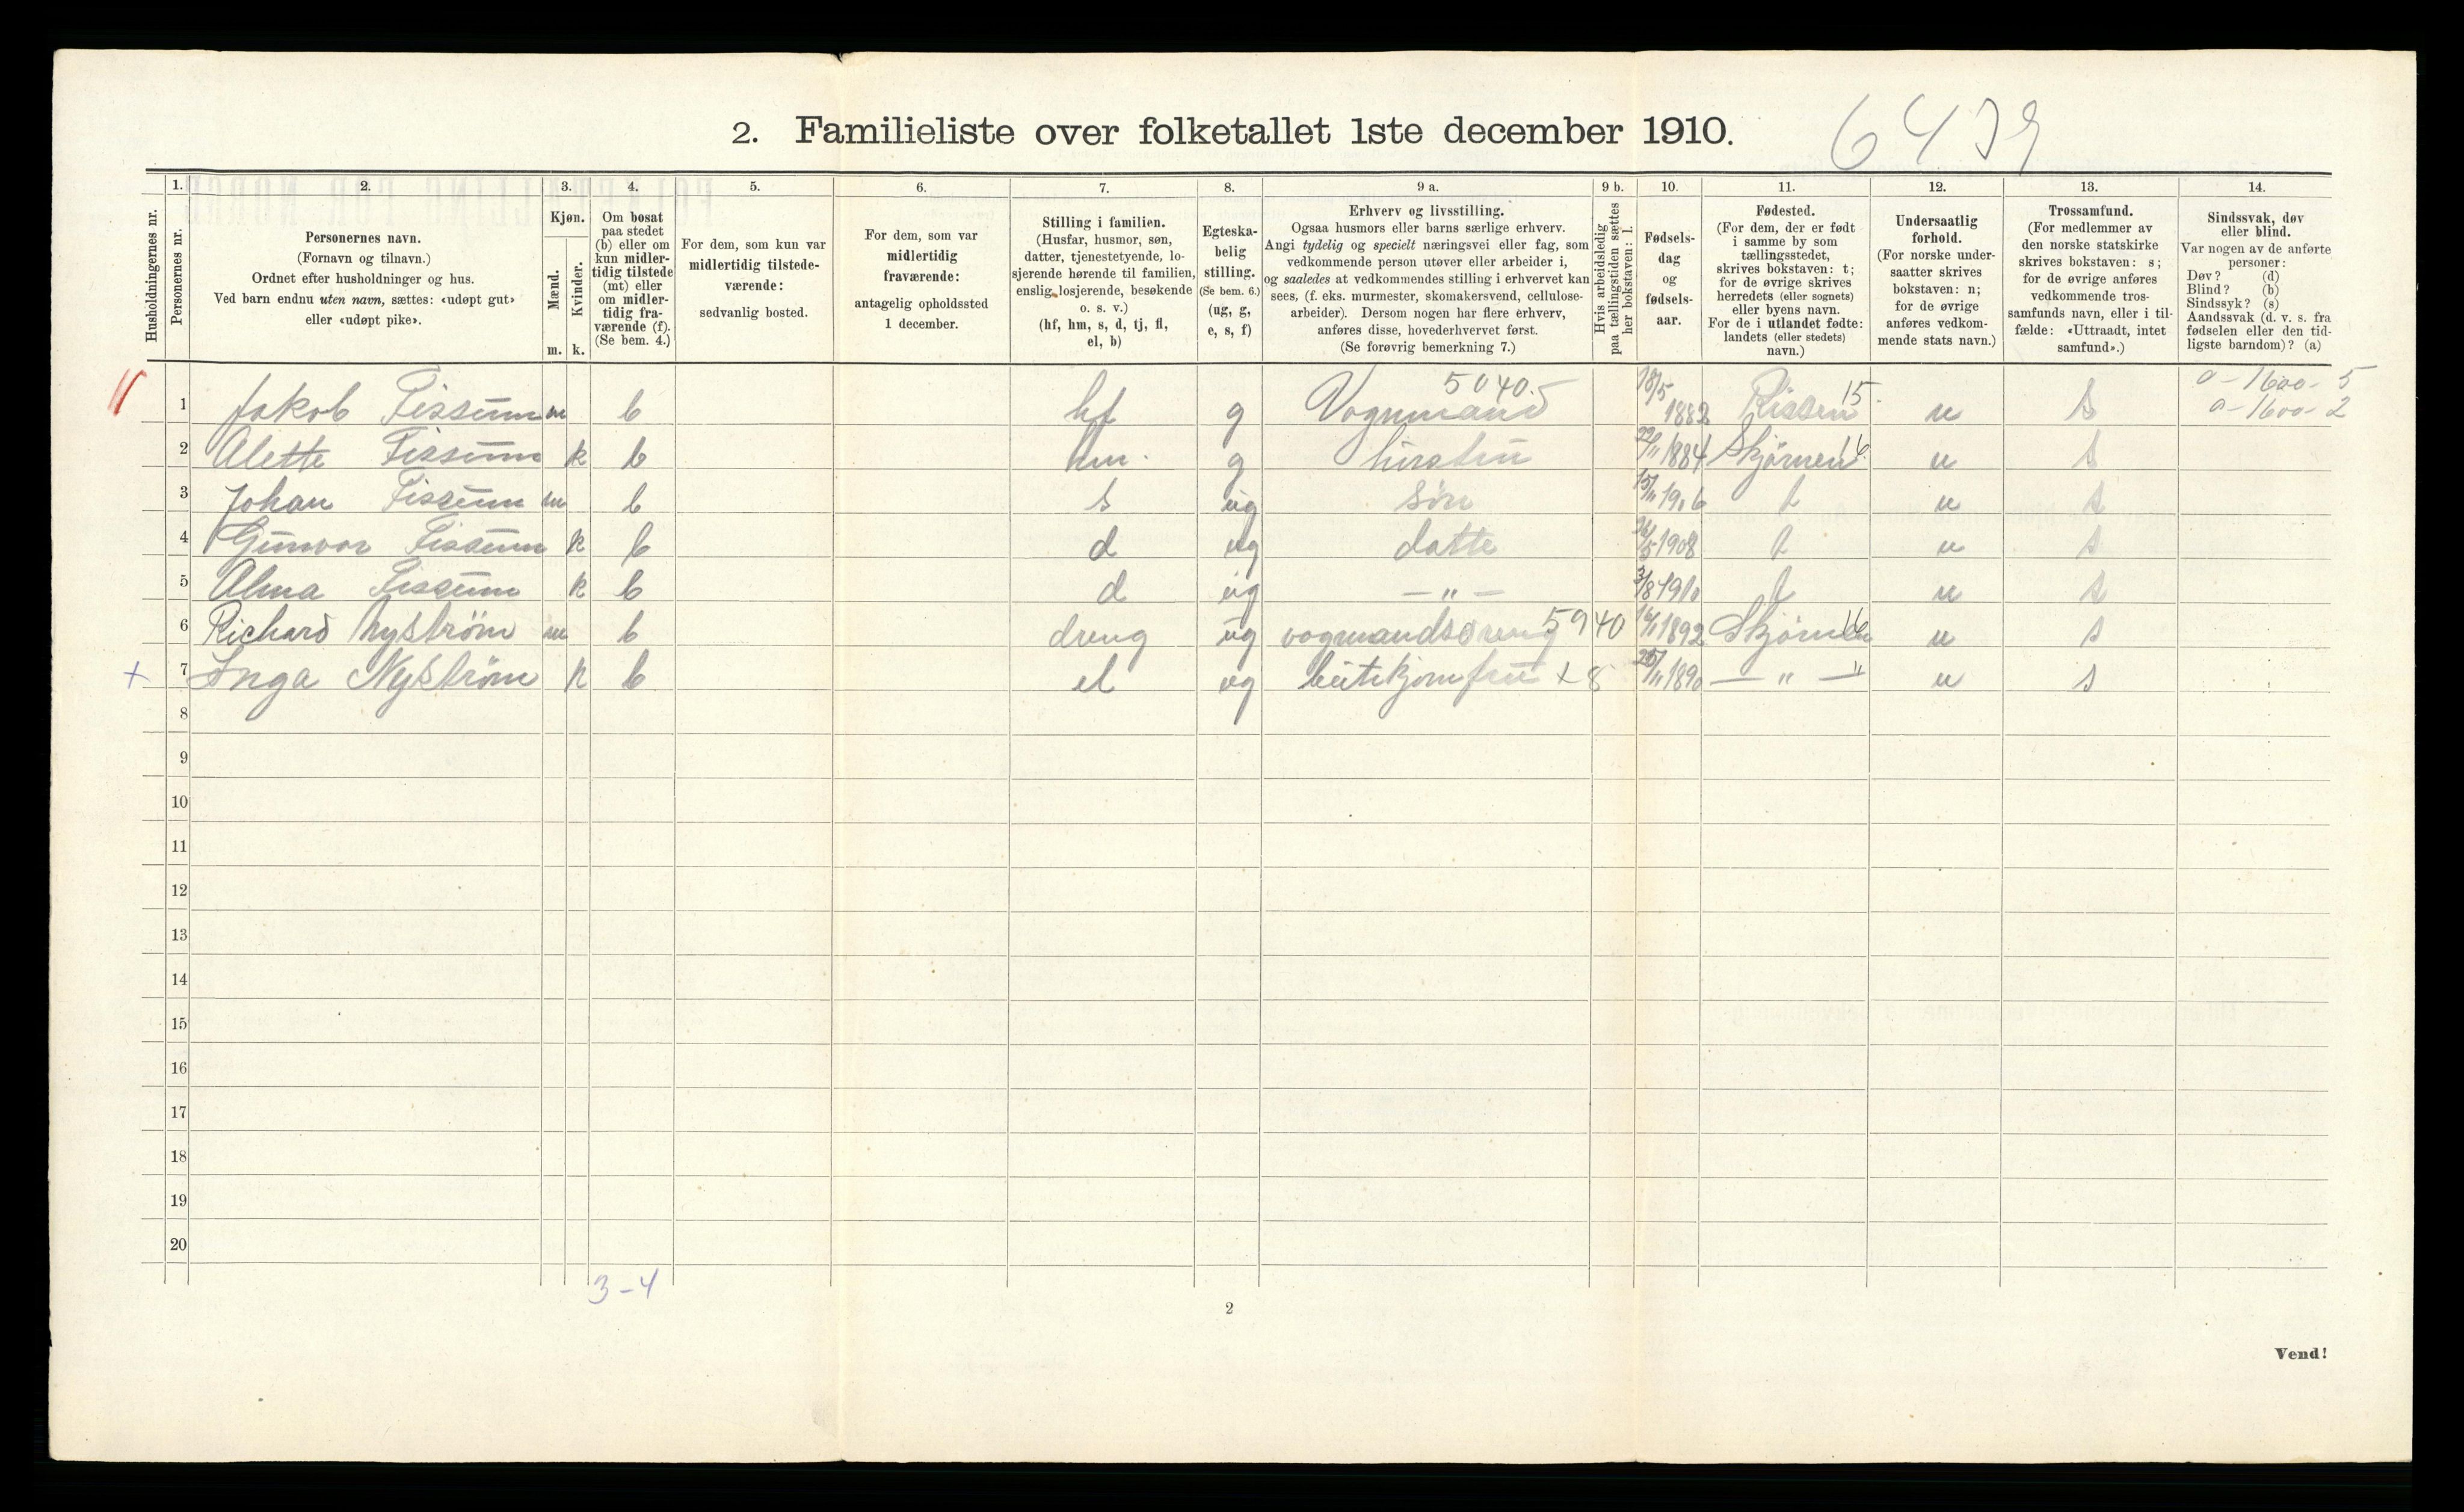 2. Familieliste over folketallet 1ste december 1910.
6479
Husholdningernes nr.
1. Personernes nr.
2. Personernes navn. (Fornavn og tilnavn.) Ordnet efter husholdninger og hus. Ved barn endnu uten navn, sættes: «udøpt gut» eller «udøpt pike».
3. Kjøn. Mænd. m. Kvinder. k.
4. Om bosat paa stedet (b) eller om kun midlertidig tilstede (mt) eller om midlertidig fraværende (f). (Se bem. 4.)
5. For dem, som kun var midlertidig tilstedeværende: sedvanlig bosted.
6. For dem, som var midlertidig fraværende: antagelig opholdssted 1 december.
7. Stilling i familien. (Husfar, husmor, søn, datter, tjenestetyende, losjerende hørende til familien, enslig losjerende, besøkende o. s. v.) (hf, hm, s, d, tj, fl, el, b)
8. Egteskabelig stilling. (Se bem. 6.) (ug, g, e, s, f)
9 a. Erhverv og livsstilling. Ogsaa husmors eller barns særlige erhverv. Angi tydelig og specielt næringsvei eller fag, som vedkommende person utøver eller arbeider i, og saaledes at vedkommendes stilling i erhvervet kan sees, (f. eks. murmester, skomakersvend, cellulosearbeider). Dersom nogen har flere erhverv, anføres disse, hovederhvervet først. (Se forøvrig bemerkning 7.)
9 b. Hvis arbeidsledig paa tællingstiden sættes her bokstaven: l.
10. Fødselsdag og fødselsaar.
11. Fødested. (For dem, der er født i samme by som tællingsstedet, skrives bokstaven: t; for de øvrige skrives herredets (eller sognets) eller byens navn. For de i utlandet fødte: landets (eller stedets) navn.)
12. Undersaatlig forhold. (For norske undersaatter skrives bokstaven: n; for de øvrige anføres vedkommende stats navn.)
13. Trossamfund. (For medlemmer av den norske statskirke skrives bokstaven: s; for de øvrige anføres vedkommende trossamfunds navn, eller i tilfælde: «Uttraadt, intet samfund».)
14. Sindssvak, døv eller blind. Var nogen av de anførte personer: Døv? (d) Blind? (b) Sindssyk? (s) Aandssvak (d. v. s. fra fødselen eller den tidligste barndom)? (a)
1 Jakob Fissum m b hf g Vognmand 5040.5 18/5 1882 Rissen 15. n s 0-1600-5 0-1600-2
2 Alette Fissum k b hm. g hustru 22/11 1884 Skjørnen 16. n s
3 Johan Fissum m b s ug søn 15/11 1906 t n s
4 Gunvor Fissum k b d ug datte 26/5 1908 t n s
5 Alma Fissum k b d ug —"— 3/8 1910 t n s
6 Richard Nystrøm m b dreng ug vogmandsdreng 5940 16/1 1892 Skjørnen 16 n s
+ 7 Inga Nystrøm k b el ug butikjomfru + 8 25/11 1890 —"— n s
8
9
10
11
12
13
14
15
16
17
18
19
20
3-4
2
Vend!